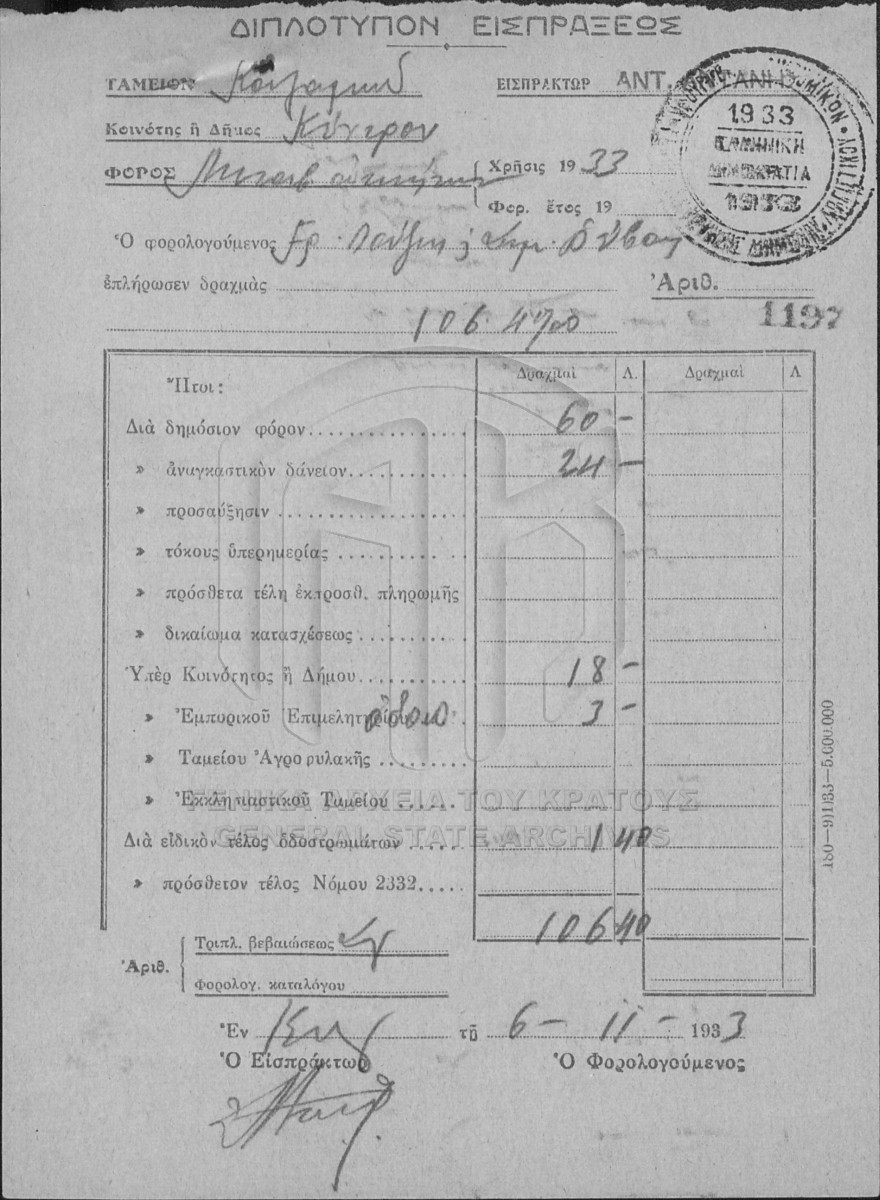 ΔΙΠΛΟΤΥΠΟΝ ΕΙΣΠΡΑΞΕΩΣ
ΤΑΜΕΙΟΝ
ΕΙΣΠΡΑΚΤΩΡ ΑΝΤ.
Κοινότης ἢ Δῆμος Κέντρου
ΦΟΡΟΣ
Χρῆσις 1933
Φορ. ἔτος 19
1933
ΕΛΛΗΝΙΚΗ
ΔΗΜΟΚΡΑΤΙΑ
1933
Ὁ φορολογούμενος
ἐπλήρωσεν δραχμὰς
Ἀριθ.
106.40
1197
Ἤτοι: Δραχμαὶ Λ. Δραχμαὶ Λ
Διὰ δημόσιον φόρον 60 -
» ἀναγκαστικὸν δάνειον 24 -
» προσαύξησιν
» τόκους ὑπερημερίας
» πρόσθετα τέλη ἐκπροσθ. πληρωμῆς
» δικαίωμα κατασχέσεως
Ὑπὲρ Κοινότητος ἢ Δήμου 18 -
» Ἐμπορικοῦ Ἐπιμελητηρίου 3 -
» Ταμείου Ἀγροφυλακῆς
» Ἐκκλησιαστικοῦ Ταμείου
ΓΕΝΙΚΑ ΑΡΧΕΙΑ ΤΟΥ ΚΡΑΤΟΥΣ
GENERAL STATE ARCHIVES
Διὰ εἰδικὸν τέλος ὁδοστρωμάτων 1 40
» πρόσθετον τέλος Νόμου 2332
106 40
Ἀριθ.
Τριπλ. βεβαιώσεως
Φορολογ. καταλόγου
Ἐν τῇ 6 - 11 - 1933
Ὁ Εἰσπράκτωρ Ὁ Φορολογούμενος